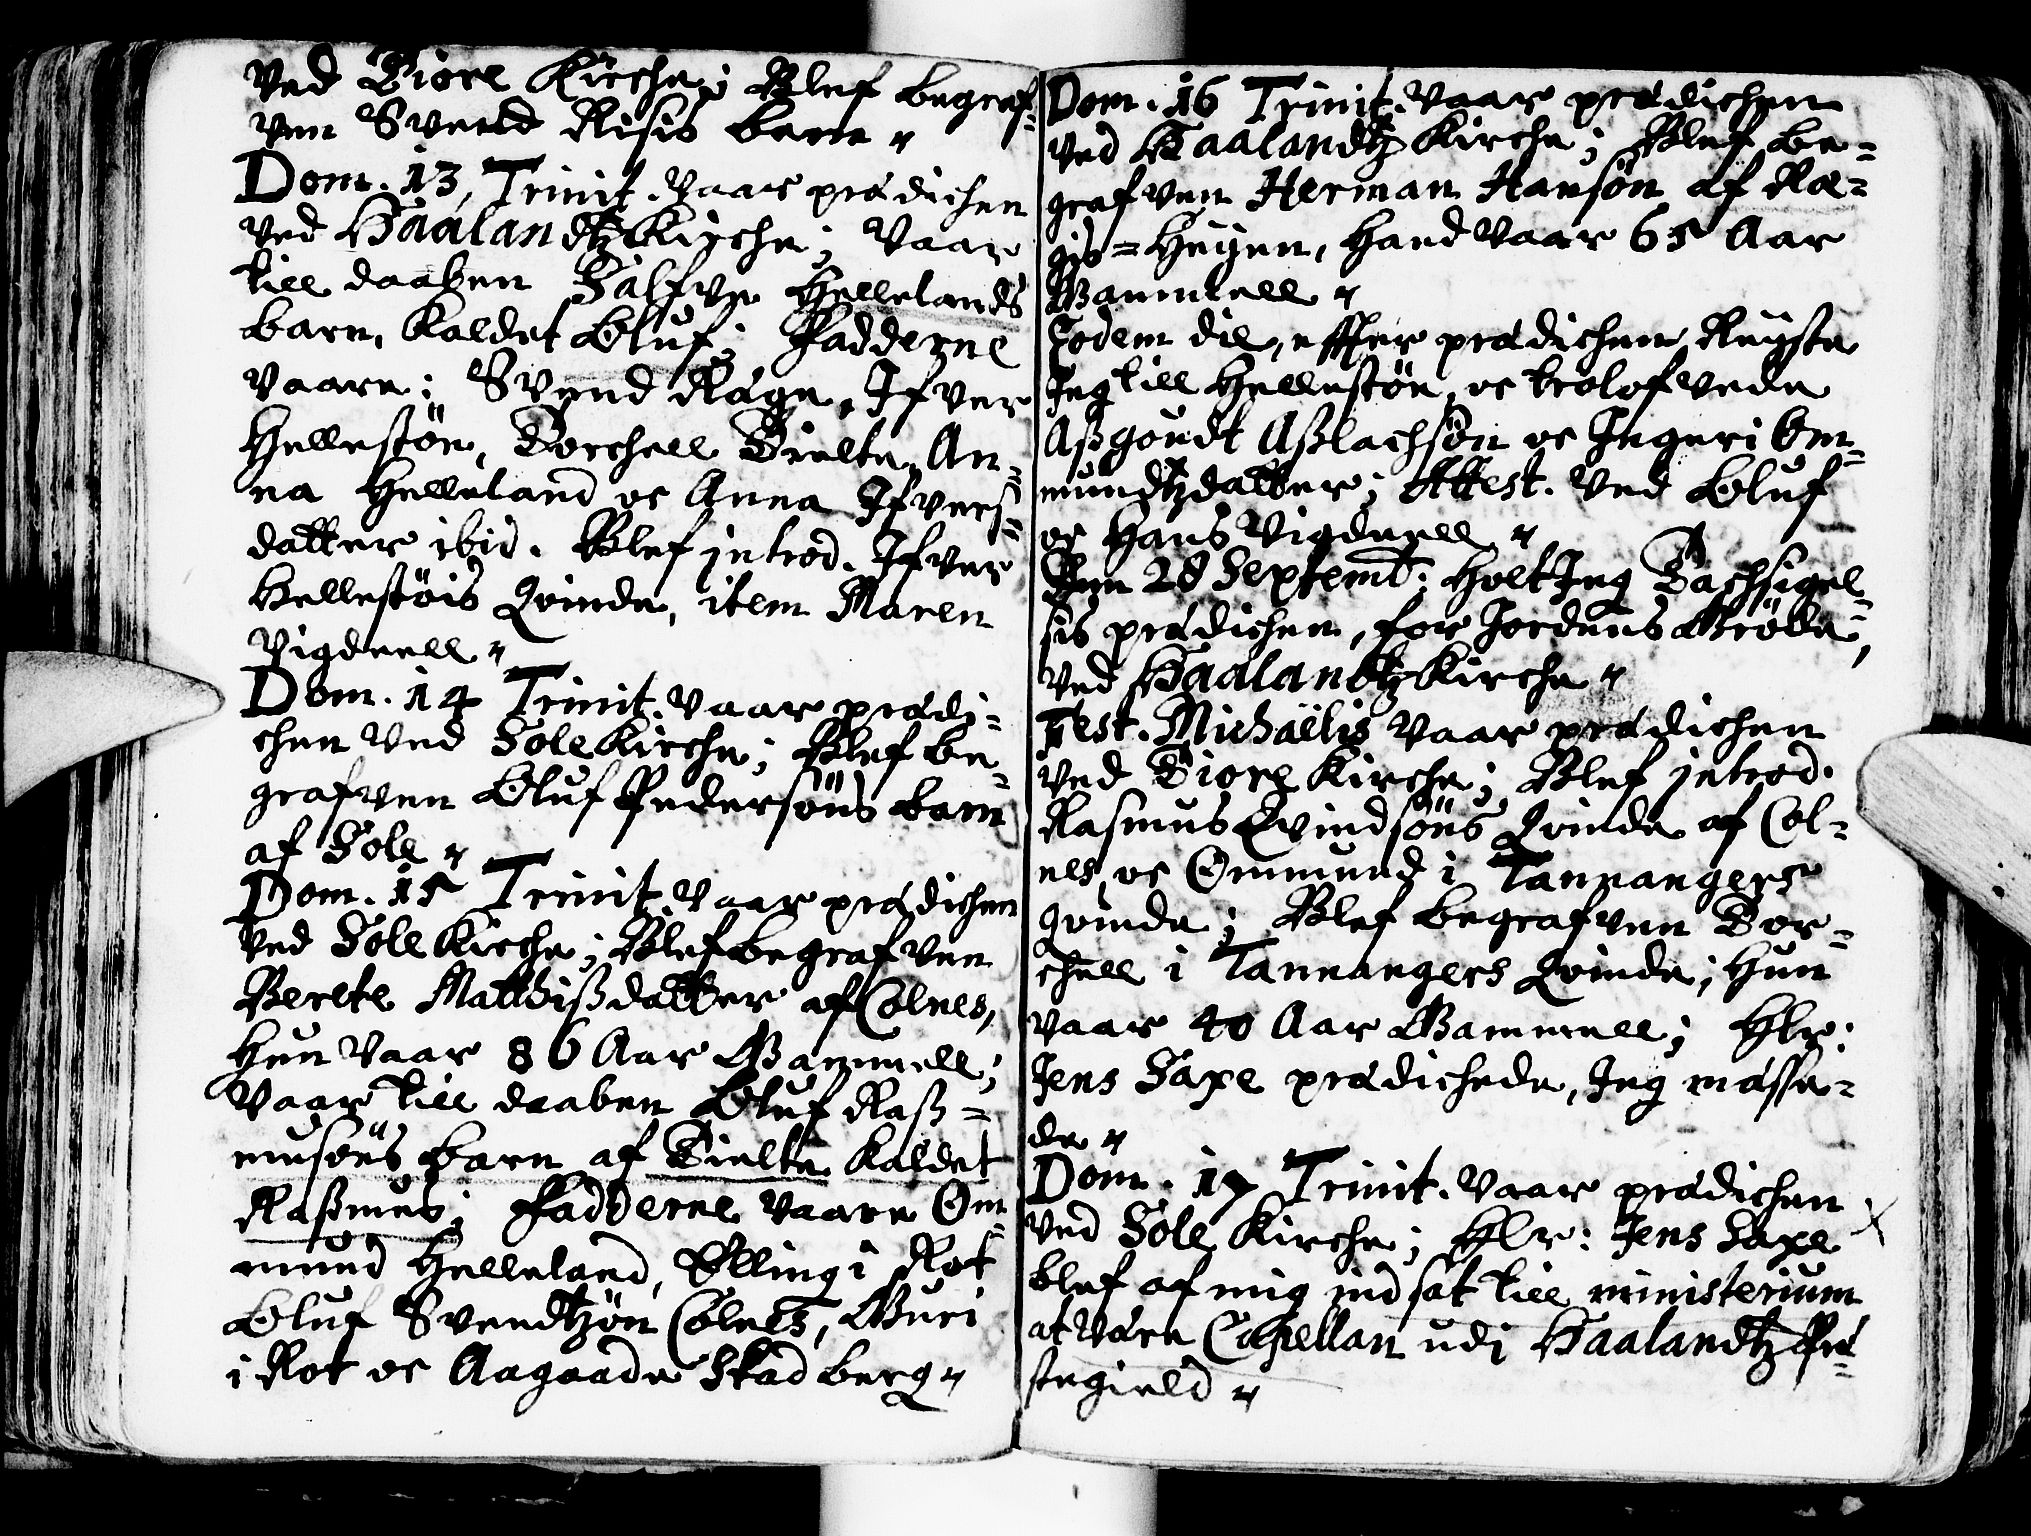 Ved Tiore Kirche; Blef begraf-
ven Svend Risis barn
Dom. 13, Trinit. Vaar prædichen
Ved Haalandtz Kirche; Vaar
till daaben Salfve Hellelands
barn, kaldet Oluf; Fadderne
vaare: Svend Ræge, Ifver
Hellestöe, Torchell Tielte, An-
na Helleland oc Anna Ifvers-
datter ibid. Blef introd. Ifver
Hellestöis Qvinde, item Maren
Vigdeell
Dom. 14 Trinit. Vaar prædi-
chen Ved Sole Kirche; Blef be-
grafven Oluf Pedersöns barn
af Sole
Dom. 15 Trinit. Vaar prædichen
ved Sole Kirche; Blef begrafven
Berete Matthißdatter af Colnes,
Hun vaar 86 Aar Gammell;
Vaar till daaben Oluf Raß-
musöns barn af Tielte kaldet
Raßmus; Fadderne vaare Om-
mund Helleland, Elling i Rot
Oluf Svendtzön Colnes, Guri
i Rot oc Aagaade Skadberg
Dom. 16 Trinit. Vaar prædichen
ved Haalandtz Kirche; Blef be-
grafven Herman Hansön af Ræ-
gis-Heyen, Hand Vaar 65 Aar
Gammell
Eodem die, effter prædichen Reyste
Jeg till Hellestöe, oc trolofvede
Aßgoudt Aßlachsön oc Ingeri Om-
mundtzdatter; Attest. Ved Oluf
oc Hans Vigdeell
Den 28 Septemb: holt Jeg Tachsigel-
sis prædichen, for Jordens Gröde,
ved Haalandtz Kirche
Fest. Michaëlis Vaar prædichen
ved Tiore Kirche; Blef introd.
Rasmus Evindsöns Qvinde af Col-
nes, oc Ommund i Tannangers
qvinde; Blef begrafven Tor-
chell i Tannangers Qvinde; Hun
vaar 40 Aar Gammell; Hlr:
Jens Saxe prædichede, Jeg messe-
de
Dom. 17 Trinit. Vaar prædichen
ved Sole Kirche; Hlr: Jens Saxe
blef af mig indsat till ministerium
at være Capellan udi Haalandtz Præ-
stegield